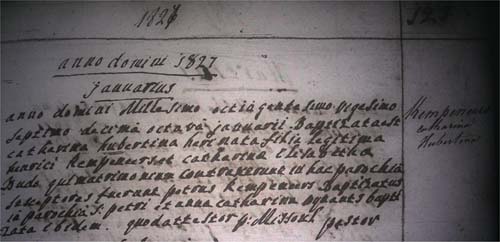 1827
anno domini 1827
januarius
anno domini Millesimo octingentesimo vigesimo
septimo decima octava januarii Baptizata est
catharina hubertina heri nata filia legitima
henrici Kempeneers et catharina Elisabetha
Bude qui matrimonium contraxerunt in hac parochia
susceptores fuerunt petrus Kempeneers Baptizatus
in parochia S. petri et anna catharina mynants bapti
zata ibidem. quod attestor p: pastor
Kempeneers
catharina
Hubertina